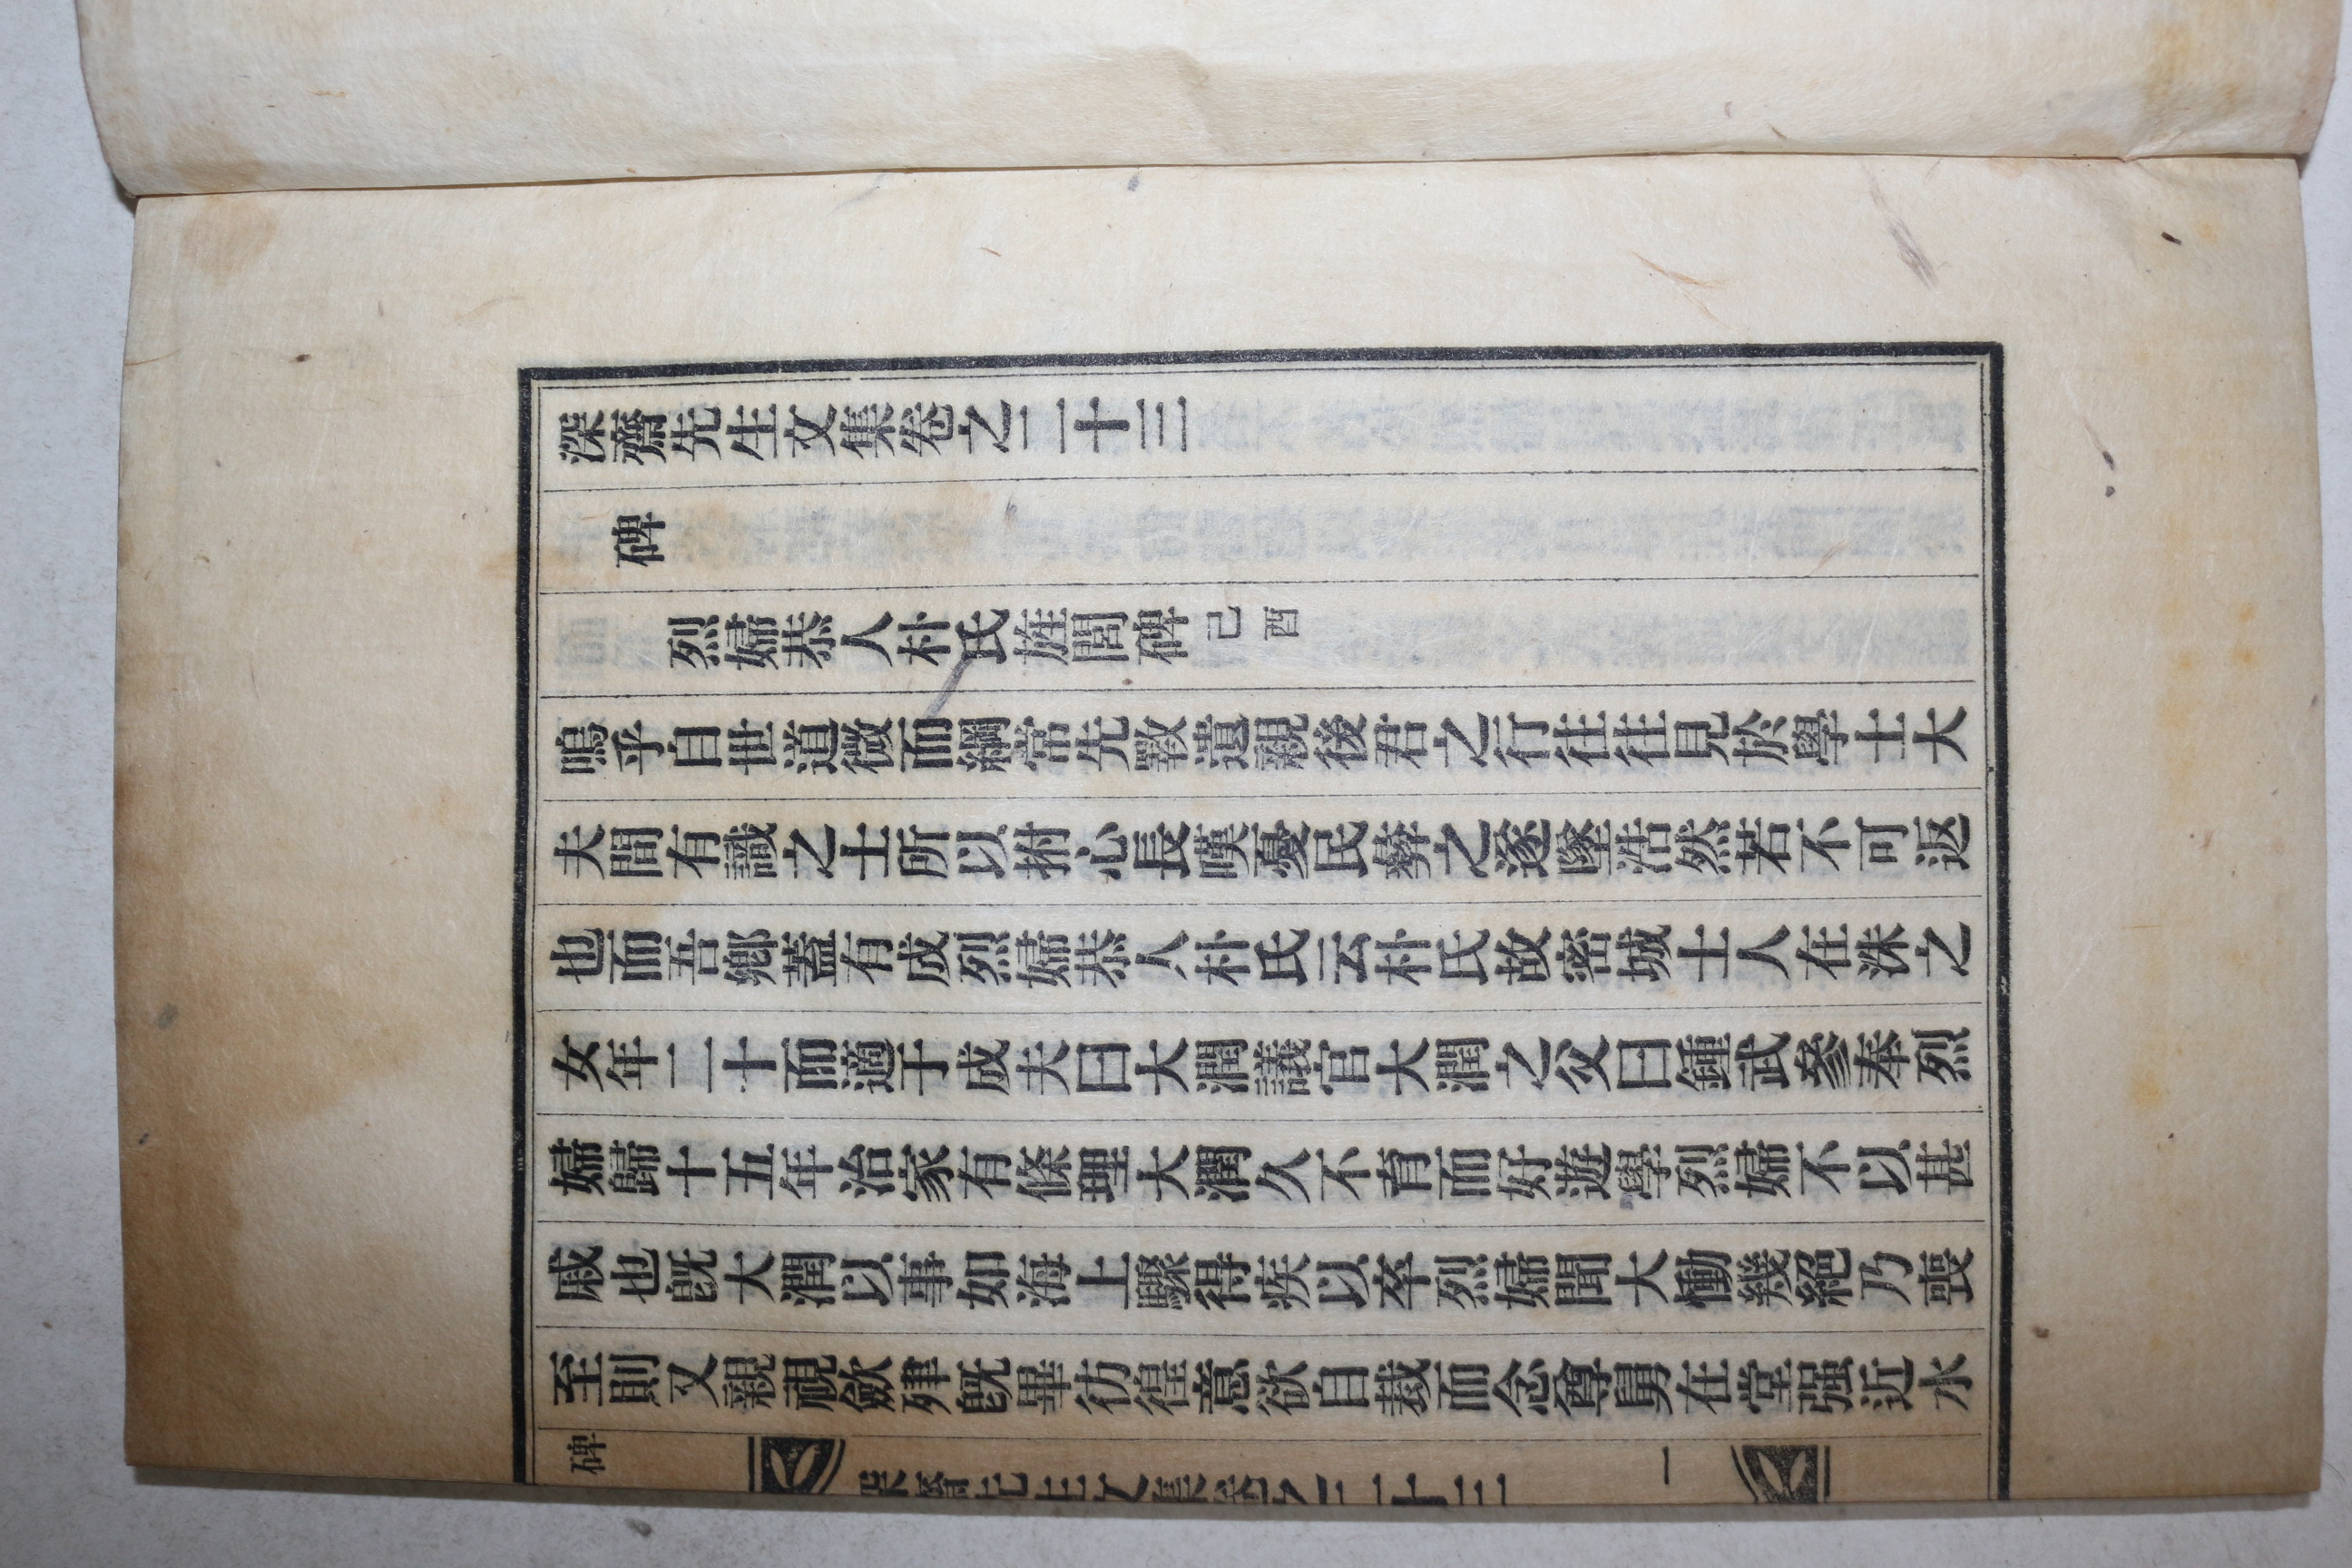 深齋先生文集卷之二十三
碑
烈婦恭人朴氏旌閭碑己酉
嗚乎自世道微而綱常先斁遺親後君之行往往見於學士大
夫間有識之士所以拊心長嘆憂民彝之遂墜浩然若不可返
也而吾鄕蓋有成烈婦恭人朴氏云朴氏故密城士人在洙之
女年二十而適于成夫曰大潤議官大潤之父曰鍾武參奉烈
婦歸十五年治家有條理大潤久不育而好遊學烈婦不以甚
戚也旣大潤以事如海上驟得疾以卒烈婦聞大慟幾絕乃喪
至則又親視斂肂旣畢彷徨意欲自裁而念尊舅在堂强近水
碑
深齋先生文集卷之二十三
一